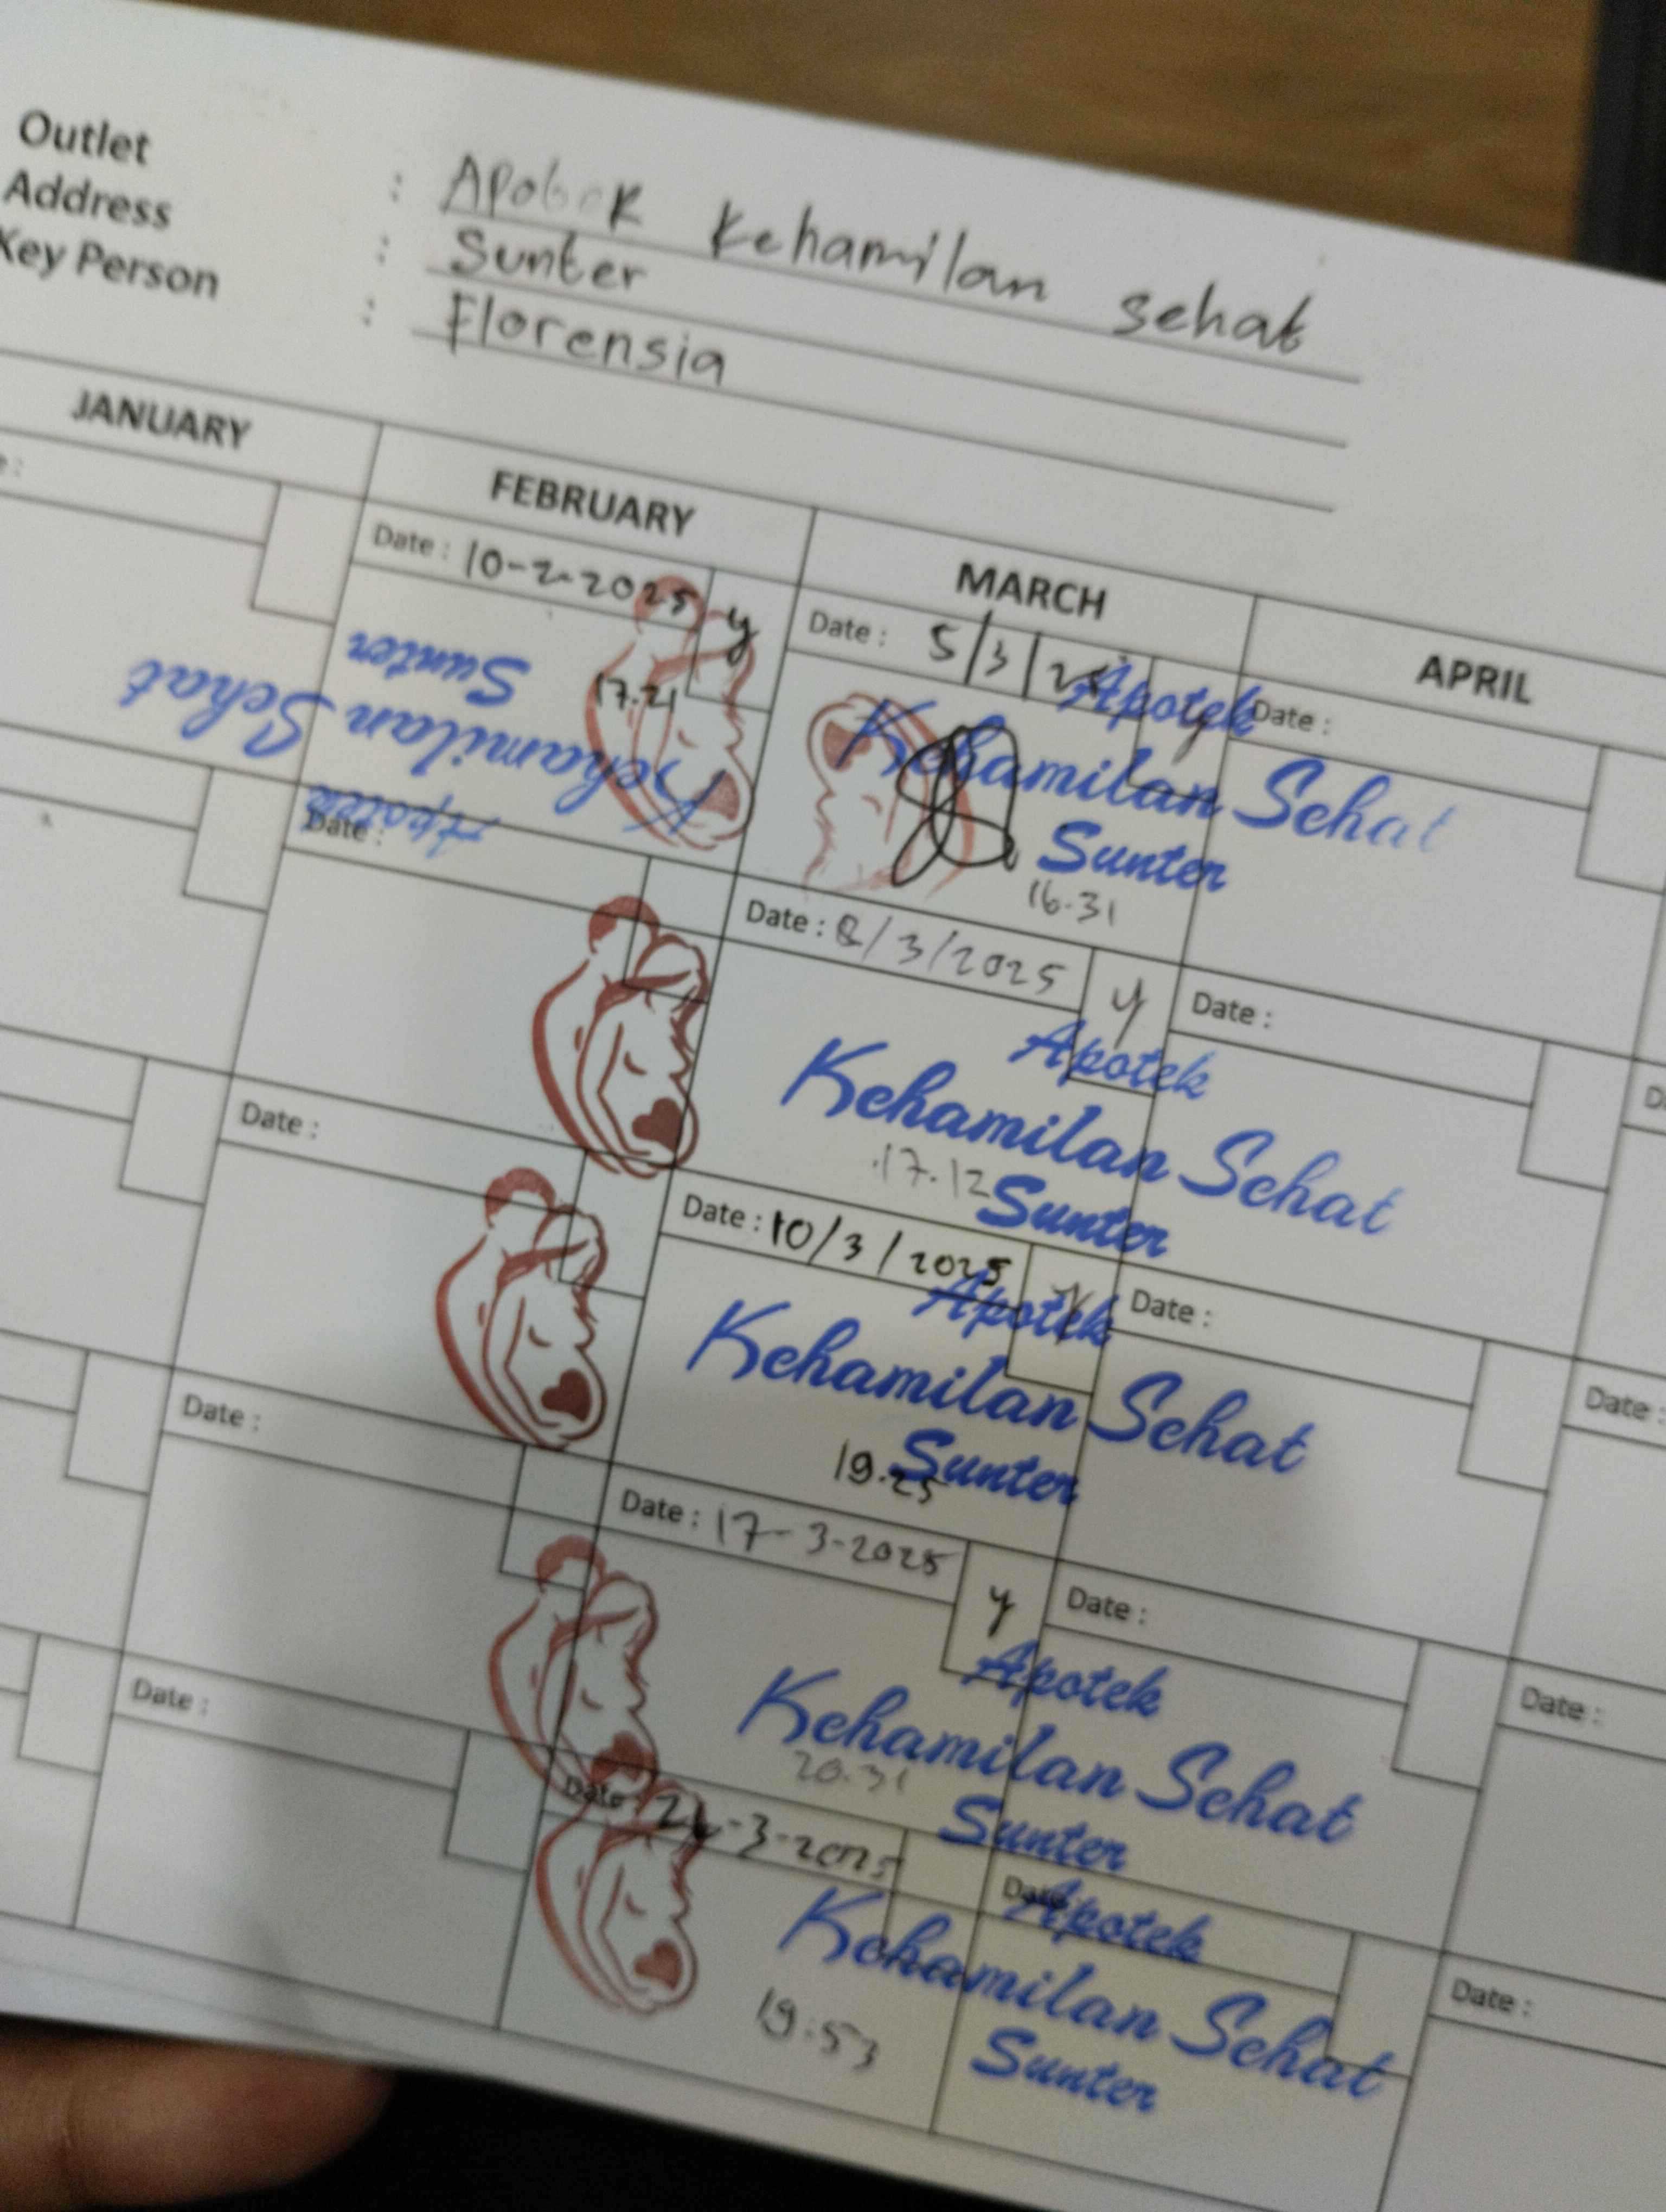 Outlet : Apotek Kehamilan Sehat
Address : Sunter
Key Person : Florensia
JANUARY
FEBRUARY
MARCH
APRIL
Date : 10-2-2025 y
17.21
Apotek
Kehamilan Sehat
Sunter
Date : 5/3/25 y
Apotek
Kehamilan Sehat
Sunter
16.31
Date :
Date :
Date : 8/3/2025 y
Apotek
Kehamilan Sehat
17.12
Sunter
Date :
Date :
Date : 10/3/2025
Apotek
Kehamilan Sehat
Sunter
19.25
Date :
Date :
Date :
Date : 17-3-2025 y
Apotek
Kehamilan Sehat
20.31
Sunter
Date :
Date :
Date :
Date : -3-2025
Apotek
Kehamilan Sehat
Sunter
19:53
Date :
Date :